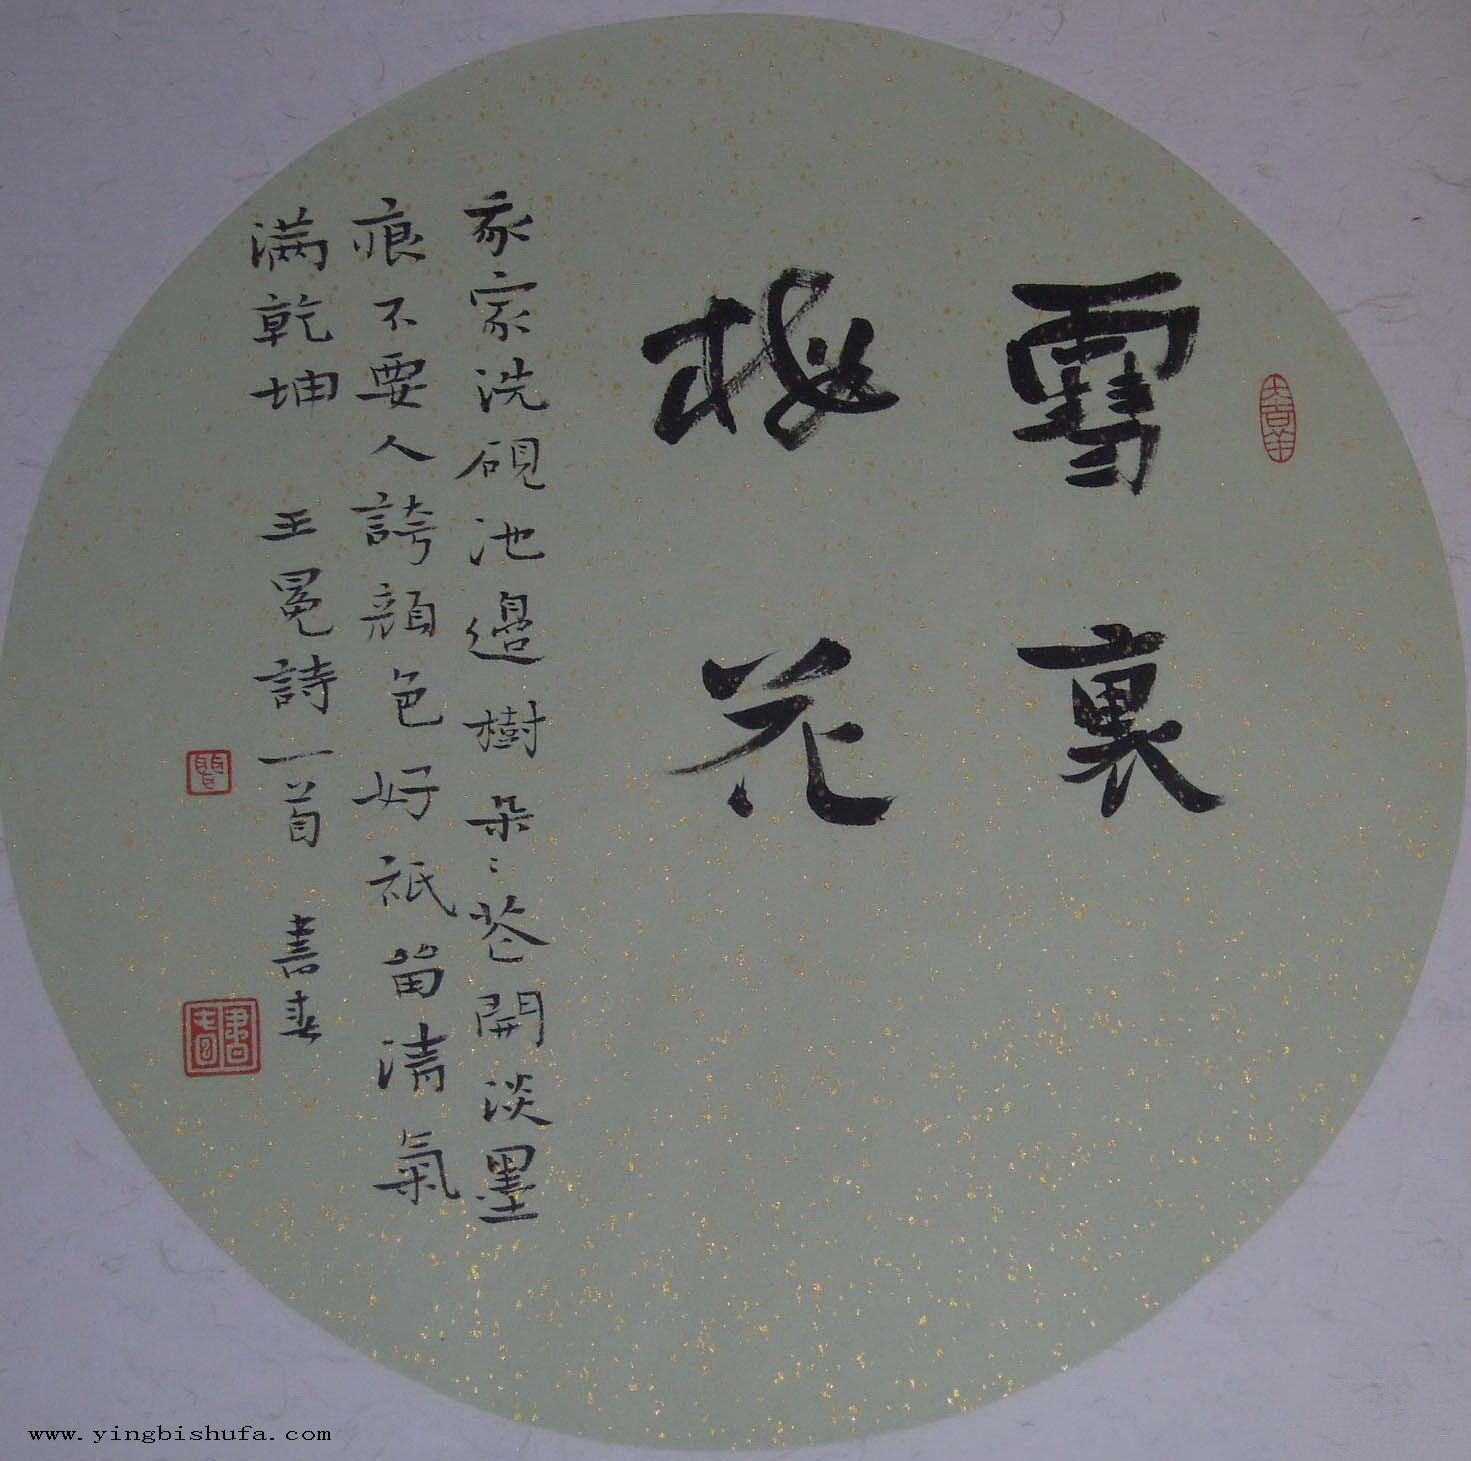 雪裏
梅花
我家洗硯池邊樹朵朵花開淡墨
痕不要人誇顔色好祇留清氣
满乾坤 王冕詩一首 書春
www.yingbishufa.com